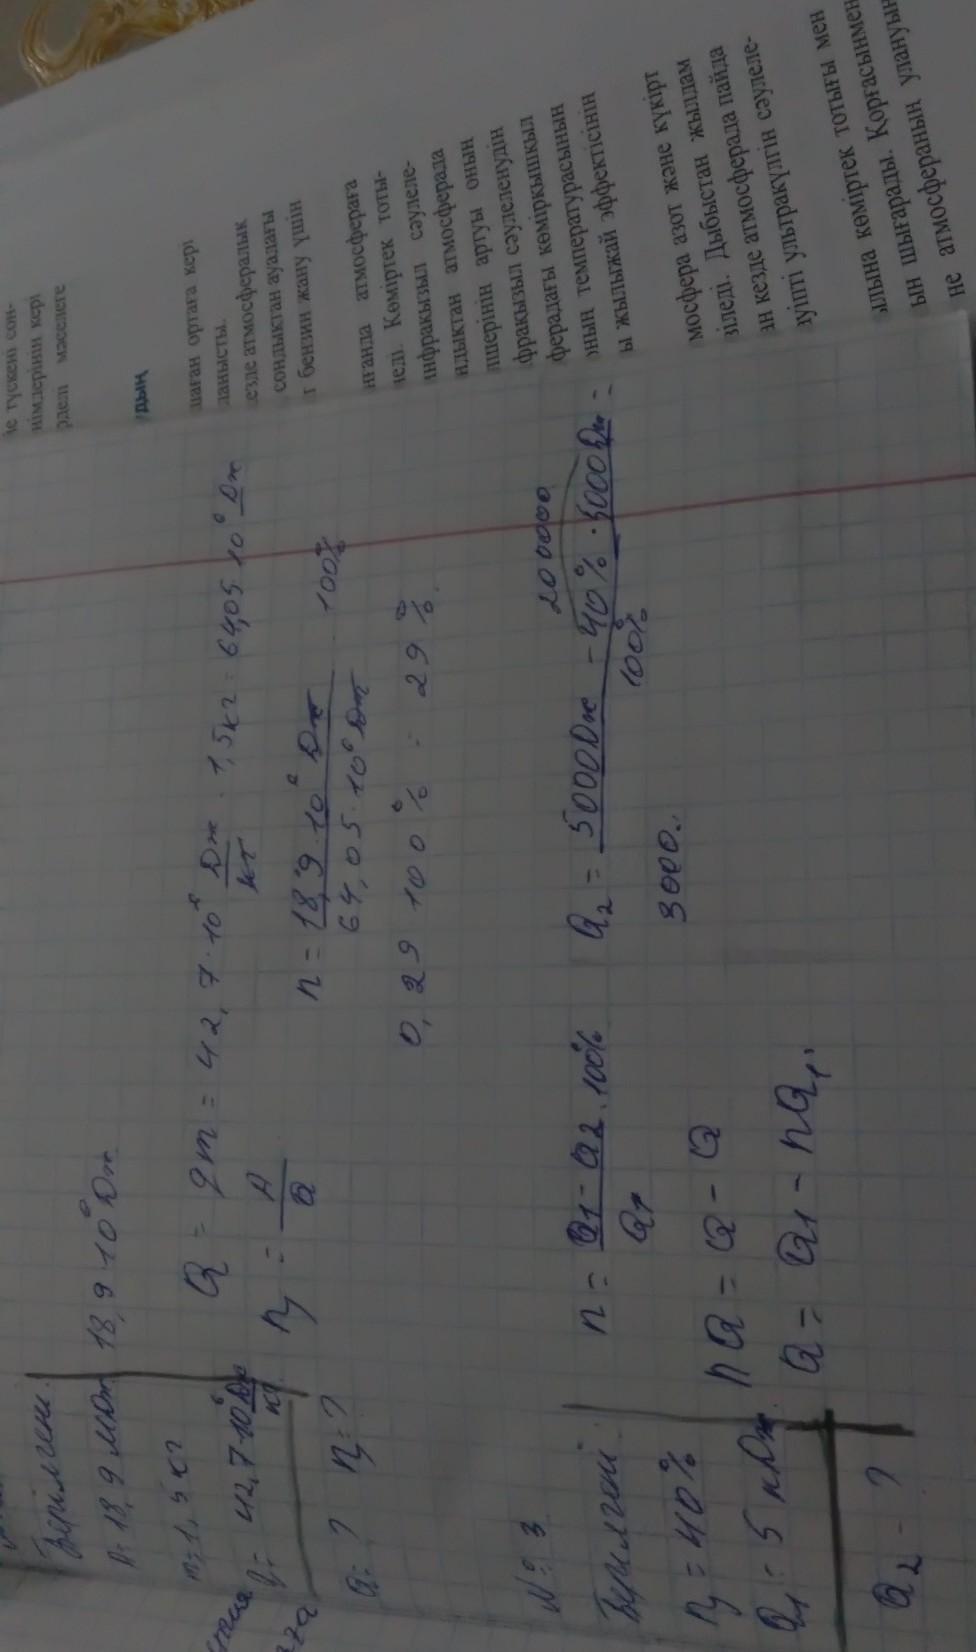 Берілгені:
A = 18,9 МДж 18,9·10⁶ Дж
m = 1,5 кг
q = 42,7·10⁶ Дж/кг
Q = ? η = ?
Q = qm = 42,7·10⁶ Дж/кг · 1,5 кг = 64,05 · 10⁶ Дж
η = A/Q
n = 18,9·10⁶ Дж / 64,05·10⁶ Дж 100%
0,29 100% = 29%.
№: 3
η = 40%
Q₁ = 5 кДж
Q₂ - ?
n = Q₁ - Q₂ / Q₁ · 100%
nQ = Q - Q
Q = Q₁ - nQ₁,
Q₂ = 5000 Дж - 40% · 5000 Дж / 100% =
200000
3000.
не түскені сон-
німдерінің кері
рделі мәселеге
дың
лаған ортаға кері
ланысты.
езде атмосфералық
сондықтан ауадағы
г бензин жану үшін
нғанда атмосфераға
неді. Көміртек тоты-
инфрақызыл сәулеле-
ндықтан атмосферада
ның артуы оның
фрақызыл сәулеленудің
ферадағы көмірқышқыл
оның температурасының
ы жылыжай эффектісінің
мосфера азот және күкірт
зіледі. Дыбыстан жылдам
ан кезде атмосферада пайда
ауіпті ультракүлгін сәулеле-
ылына көміртек тотығы мен
ын шығарады. Қорғасынмен
не атмосфераның улануын